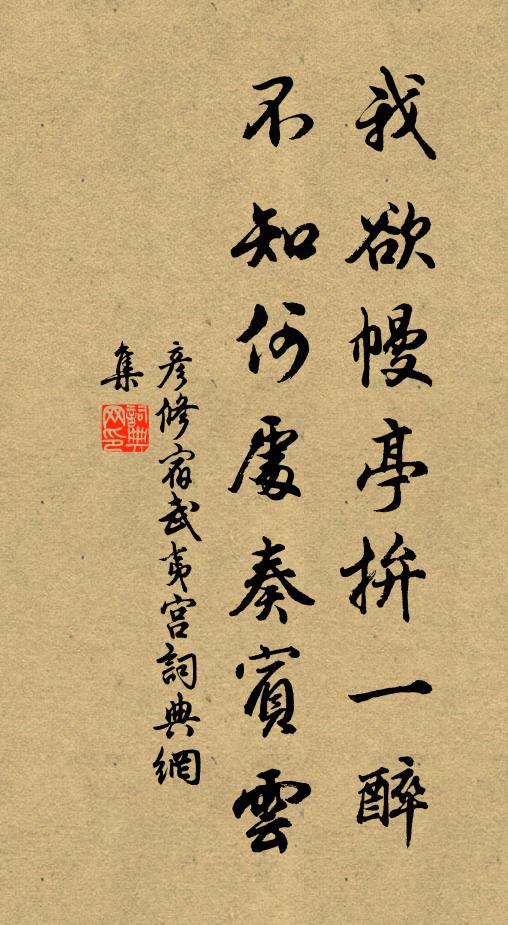 我欲幔亭拚一醉
不知何處奏賓雲
彦修宿武夷宮詞典網
集
詞典网印